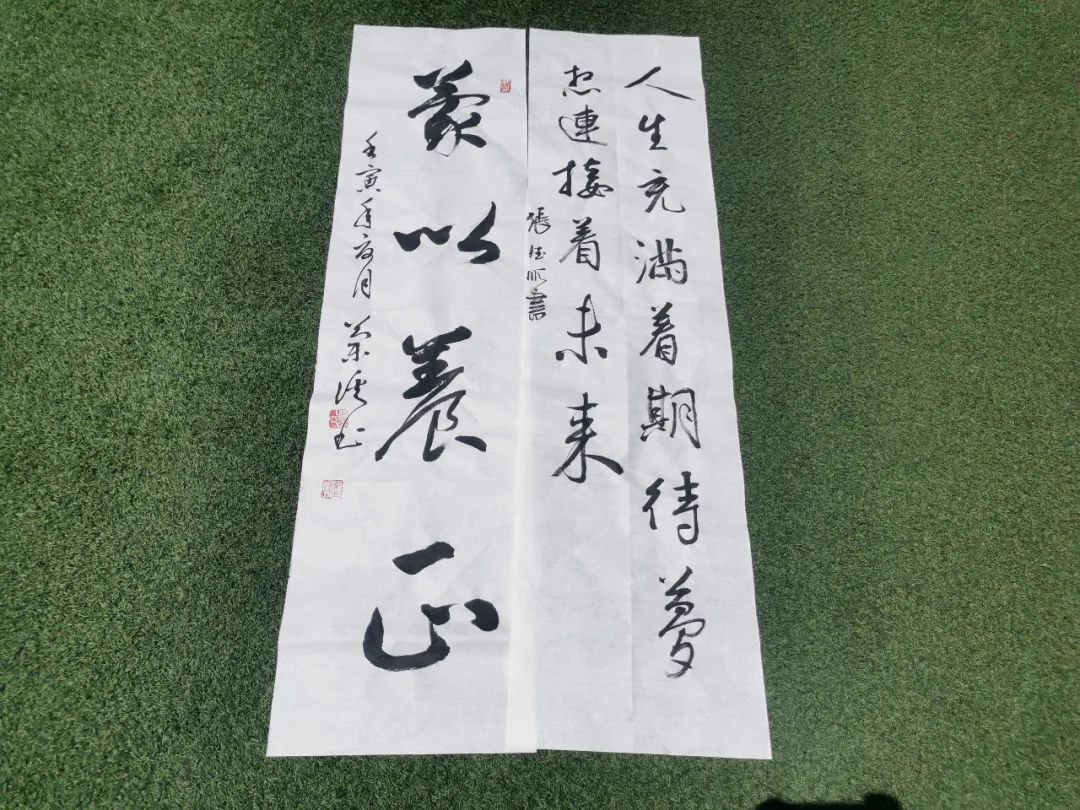 人生充满着期待梦
想連接着未来
張德順書
蒙以養正
壬寅年夏月